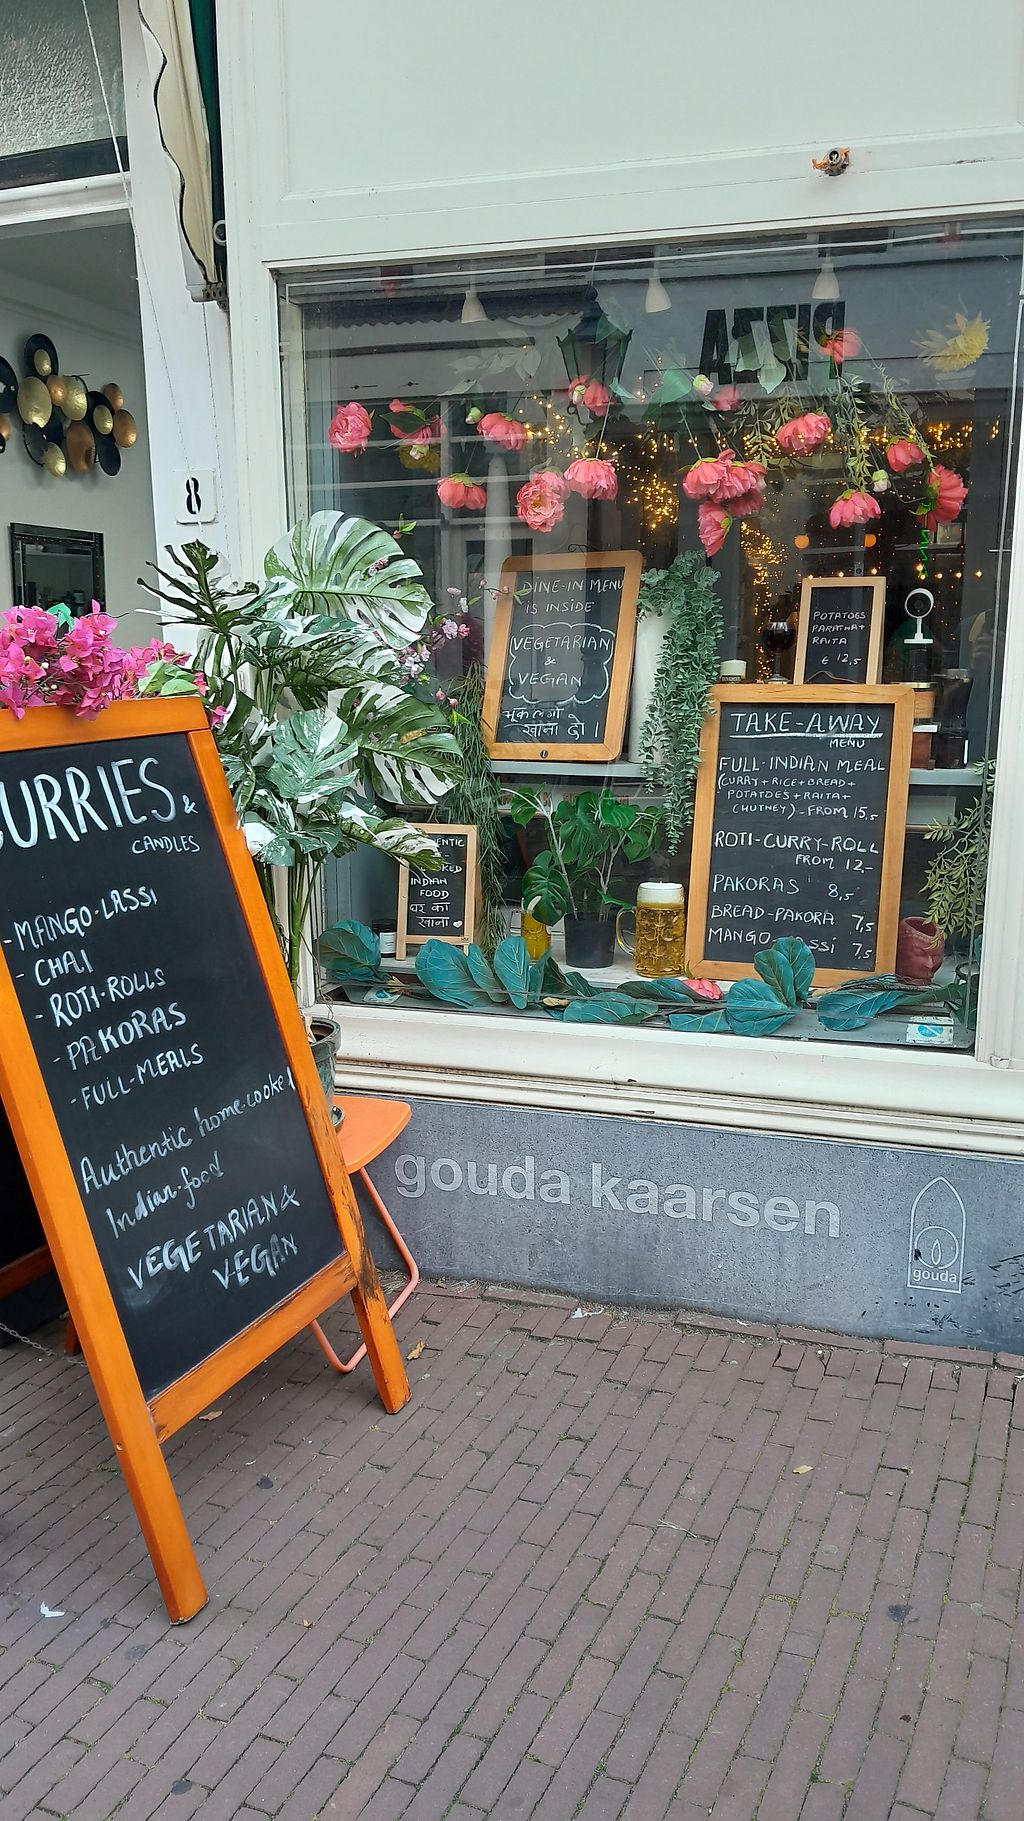 PIZZA
8
DINE-IN MENU
IS INSIDE
VEGETARIAN
&
VEGAN
भूक लगी
खाना दो।
POTATOES
PARATHA+
RAITA
€ 12,5
TAKE-AWAY
MENU
FULL-INDIAN MEAL
(CURRY+RICE+BREAD+
POTATOES+RAITA+
CHUTNEY)-FROM 15,5
ROTI-CURRY-ROLL
FROM 12,-
PAKORAS 8,5
BREAD-PAKORA 7,5
MANGO LASSI 7,5
INDIAN
FOOD
घर का
खाना
CURRIES &
CANDLES
-MANGO-LASSI
- CHAI
- ROTI-ROLLS
- PAKORAS
-FULL-MEALS
Authentic home-cooked
Indian-food
VEGETARIAN &
VEGAN
gouda kaarsen
gouda